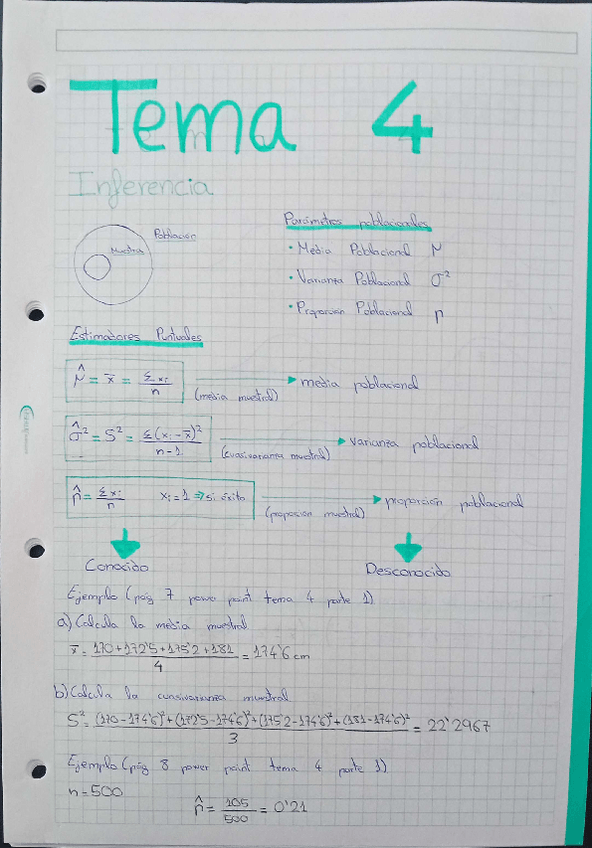 Tema 4
Inferencia
Población
Muestra
Parámetros poblacionales
· Media Poblacional μ
· Varianza Poblacional σ²
· Proporción Poblacional p
Estimadores Puntuales
μ̂ = x̄ = Σxi / n (media muestral) → media poblacional
σ̂² = S² = Σ(xi - x̄)² / n-1 (cuasivarianza muestral) → varianza poblacional
p̂ = Σxi / n xi = 1 ⇒ si éxito (proporción muestral) → proporción poblacional
Conocido Desconocido
Ejemplo (pág 7 power point tema 4 parte 1)
a) Calcula la media muestral
x̄ = 170+172'5+175'2+181 / 4 = 174'6 cm
b) Calcula la cuasivarianza muestral
S² = (170-174'6)²+(172'5-174'6)²+(175'2-174'6)²+(181-174'6)² / 3 = 22'2967
Ejemplo (pág 8 power point tema 4 parte 1)
n = 500
p̂ = 105 / 500 = 0'21